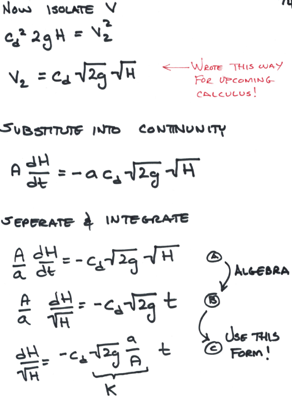 NOW ISOLATE V
C_d² 2gH = V₂²
V₂ = C_d √2g √H
← WROTE THIS WAY
FOR UPCOMING
CALCULUS!
SUBSTITUTE INTO CONTINUNITY
A dH/dt = -a C_d √2g √H
SEPERATE & INTEGRATE
A/a dH/dt = -C_d √2g √H Ⓐ
ALGEBRA
A/a dH/√H = -C_d √2g t Ⓑ
USE THIS
dH/√H = -C_d √2g a/A t Ⓒ FORM!
K